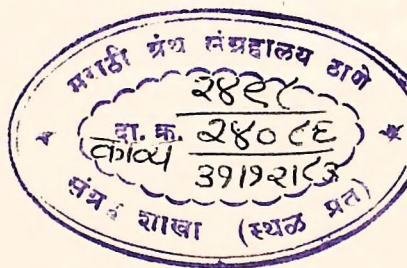 मराठी ग्रंथ संग्रहालय ठाणे
२४९८
दा. क्र. २४०८६
काव्य ३१।१२।८३
संग्रह शाखा (स्थळ प्रत)